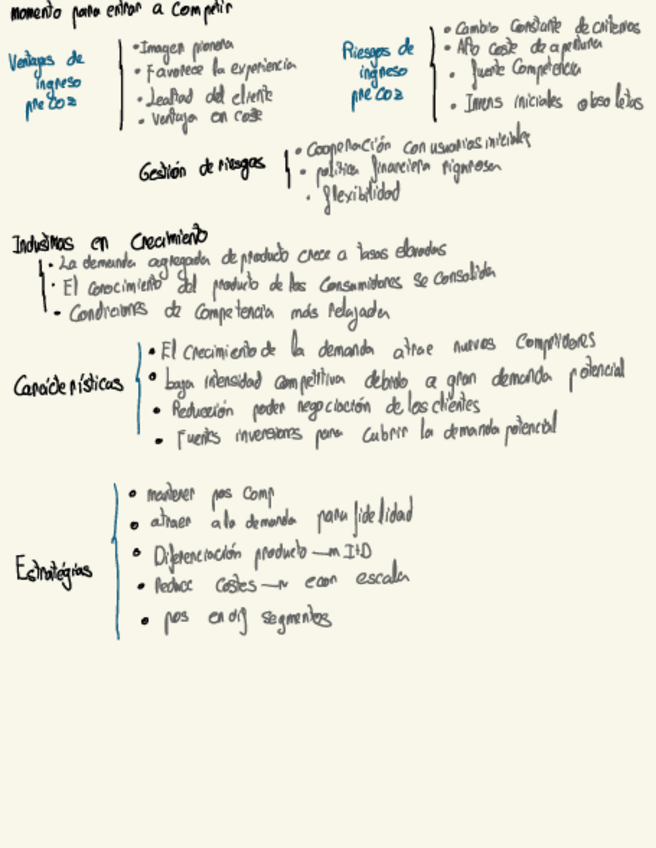 momento para entrar a competir
Ventajas de ingreso precoz
• Imagen pionera
• Favorece la experiencia
• Lealtad del cliente
• Ventaja en coste
Riesgos de ingreso precoz
• Cambio constante de criterios
• Alto coste de apertura
• fuerte Competencia
• Invers iniciales obsoletas
Gestión de riesgos
• Cooperación con usuarios iniciales
• política financiera rigurosa
• flexibilidad
Industrias en Crecimiento
• La demanda agregada de producto crece a tasas elevadas
• El conocimiento del producto de los Consumidores se consolida
• Condiciones de competencia más relajada
Características
• El Crecimiento de la demanda atrae nuevos Competidores
• baja intensidad competitiva debido a gran demanda potencial
• Reducción poder negociación de los clientes
• Fuertes inversiones para Cubrir la demanda potencial
Estratégias
• mantener pos Comp
• atraer a la demanda para fidelidad
• Diferenciación producto → I+D
• Reduce Costes → econ escala
• pos en segmentos